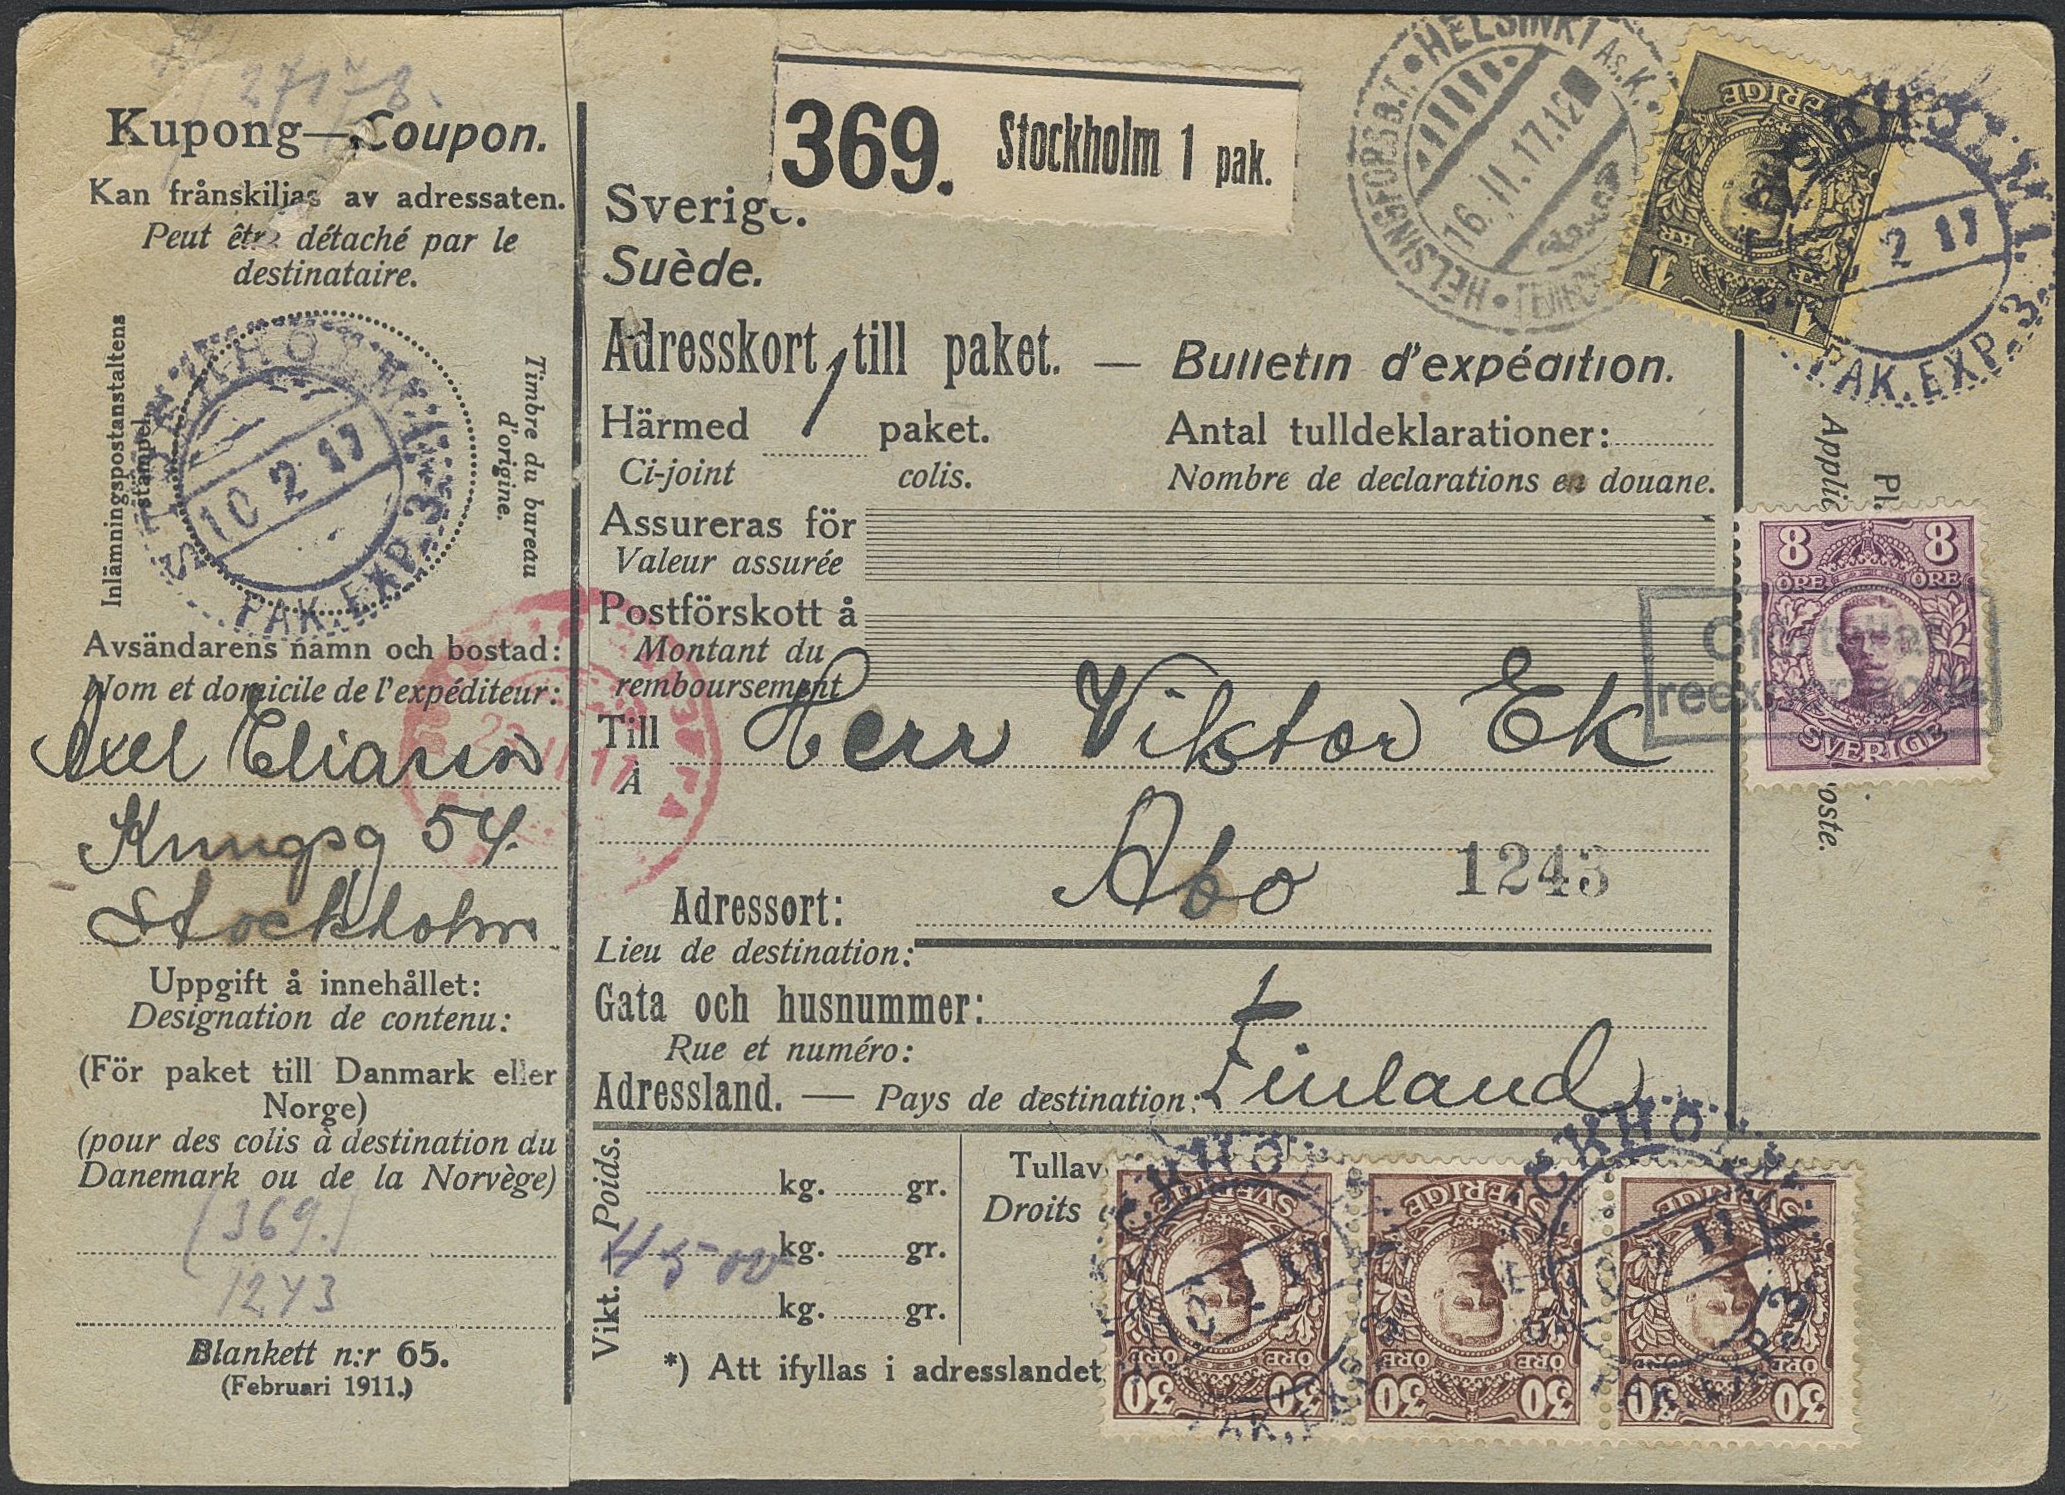 27178.
Kupong—Coupon.
Kan frånskiljas av adressaten.
Peut être détaché par le
destinataire.
Inlämningspostanstaltens
stämpel.
Timbre du bureau
d'origine.
STOCKHOLM 1
10 2 17
PAK.EXP.3
Avsändarens namn och bostad:
Nom et domicile de l'expéditeur:
Axel Eliasson
Kungsg 54.
Stockholm
Uppgift å innehållet:
Designation de contenu:
(För paket till Danmark eller
Norge)
(pour des colis à destination du
Danemark ou de la Norvège)
(369.)
1243
Blankett n:r 65.
(Februari 1911.)
369. Stockholm 1 pak.
Sverige.
Suède.
HELSINKI As.K.
HELSINGFORS B.T.
16.II.17.12
Adresskort till paket. — Bulletin d'expédition.
Härmed 1 paket.
Ci-joint colis.
Antal tulldeklarationer:
Nombre de declarations en douane.
Assureras för
Valeur assurée
Postförskott å
Montant du
remboursement
Till
À
Herr Viktor Ek
Åbo
1243
Adressort:
Lieu de destination:
Gata och husnummer:
Rue et numéro:
Adressland. — Pays de destination:
Finland
Vikt. — Poids.
kg. gr.
kg. gr.
kg. gr.
Tullav
Droits
*) Att ifyllas i adresslandet
SVERIGE
1 KR 1
2 17
PAK.EXP.3
8 8
ÖRE ÖRE
SVERIGE
oste.
SVERIGE
30 ÖRE ÖRE 30
SVERIGE
30 ÖRE ÖRE 30
SVERIGE
30 ÖRE ÖRE 30